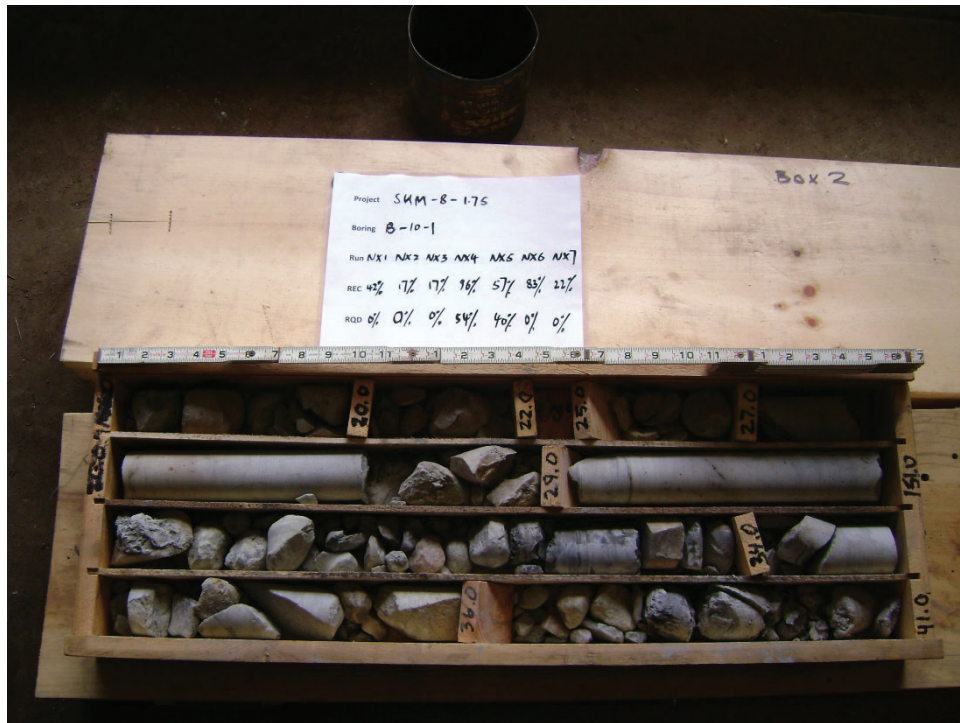 BOX 2
Project SKM-8-1.75
Boring B-10-1
Run NX1 NX2 NX3 NX4 NX5 NX6 NX7
REC 42% 17% 17% 96% 57% 83% 22%
RQD 0% 0% 0% 54% 40% 0% 0%
1 2 3 4 5 6 7 8 9 10 11 1 2 3 4 5 6 7 8 9 10 11 1 2 3 4 5 6 7
20.0 22.0 25.0 27.0
29.0
34.0
36.0
41.0